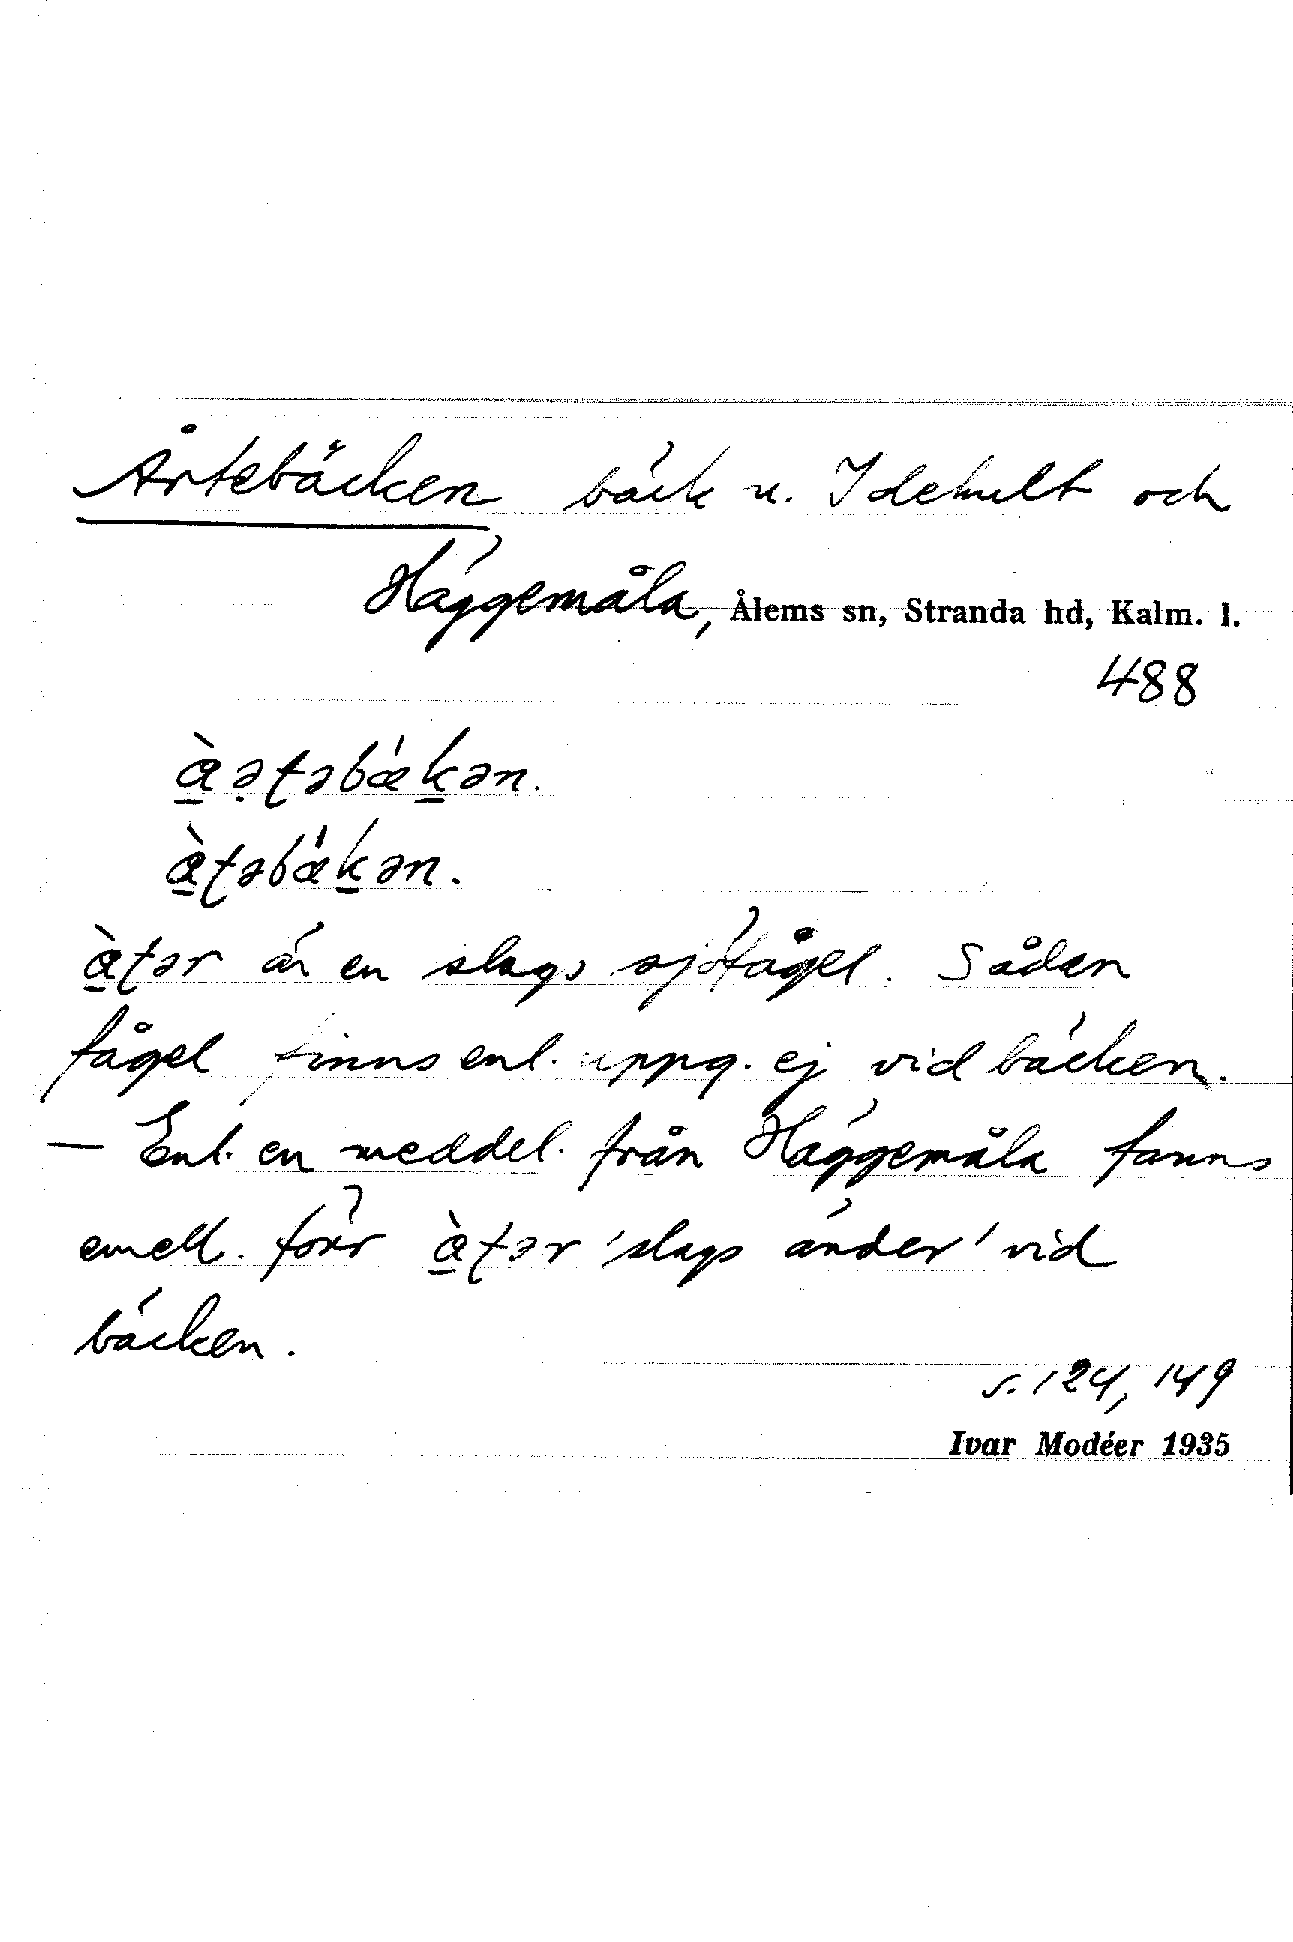 Årtebäcken bäck u. Idehult och
Häggemåla, Ålems sn, Stranda hd, Kalm. l.
488
æ̱̀ə̣ʈəbǽḵən.
æ̱̀ʈəbǽḵən.
æ̱̀ʈər är en slags sjöfågel. Såden
fågel finns enl. uppg. ej vid bäcken.
— Enl. en meddel. från Häggemåla fanns
emell. förr æ̱̀ʈər 'slags änder' vid
bäcken.
s. 124, 149
Ivar Modéer 1935